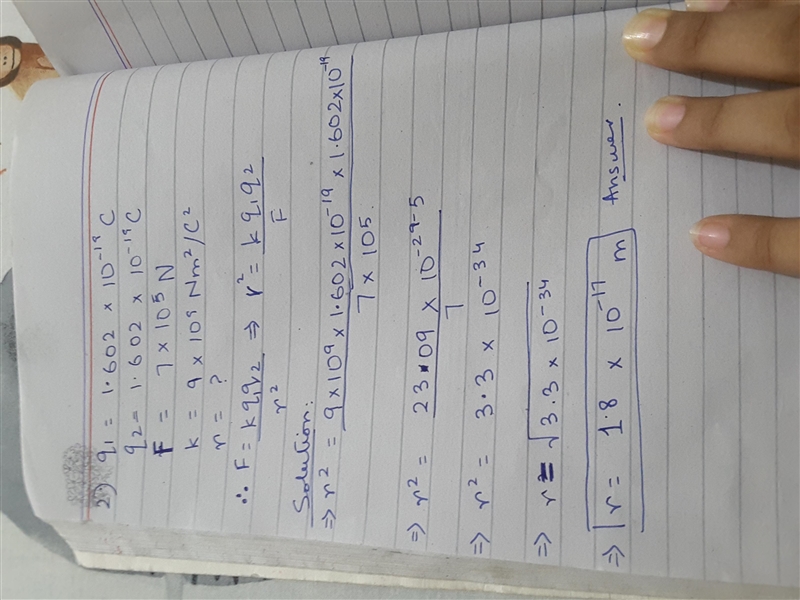 2.) q₁ = 1.602 × 10⁻¹⁹ C
q₂ = 1.602 × 10⁻¹⁹ C
F = 7 × 10⁵ N
k = 9 × 10⁹ Nm²/C²
r = ?
∴ F = kq₁q₂/r² ⇒ r² = kq₁q₂/F
Solution:
⇒ r² = 9×10⁹ × 1.602×10⁻¹⁹ × 1.602×10⁻¹⁹ / 7 × 10⁵.
⇒ r² = 23.09 × 10⁻²⁹⁻⁵ / 7
⇒ r² = 3.3 × 10⁻³⁴
⇒ r = √3.3 × 10⁻³⁴
⇒ r = 1.8 × 10⁻¹⁷ m Answer.